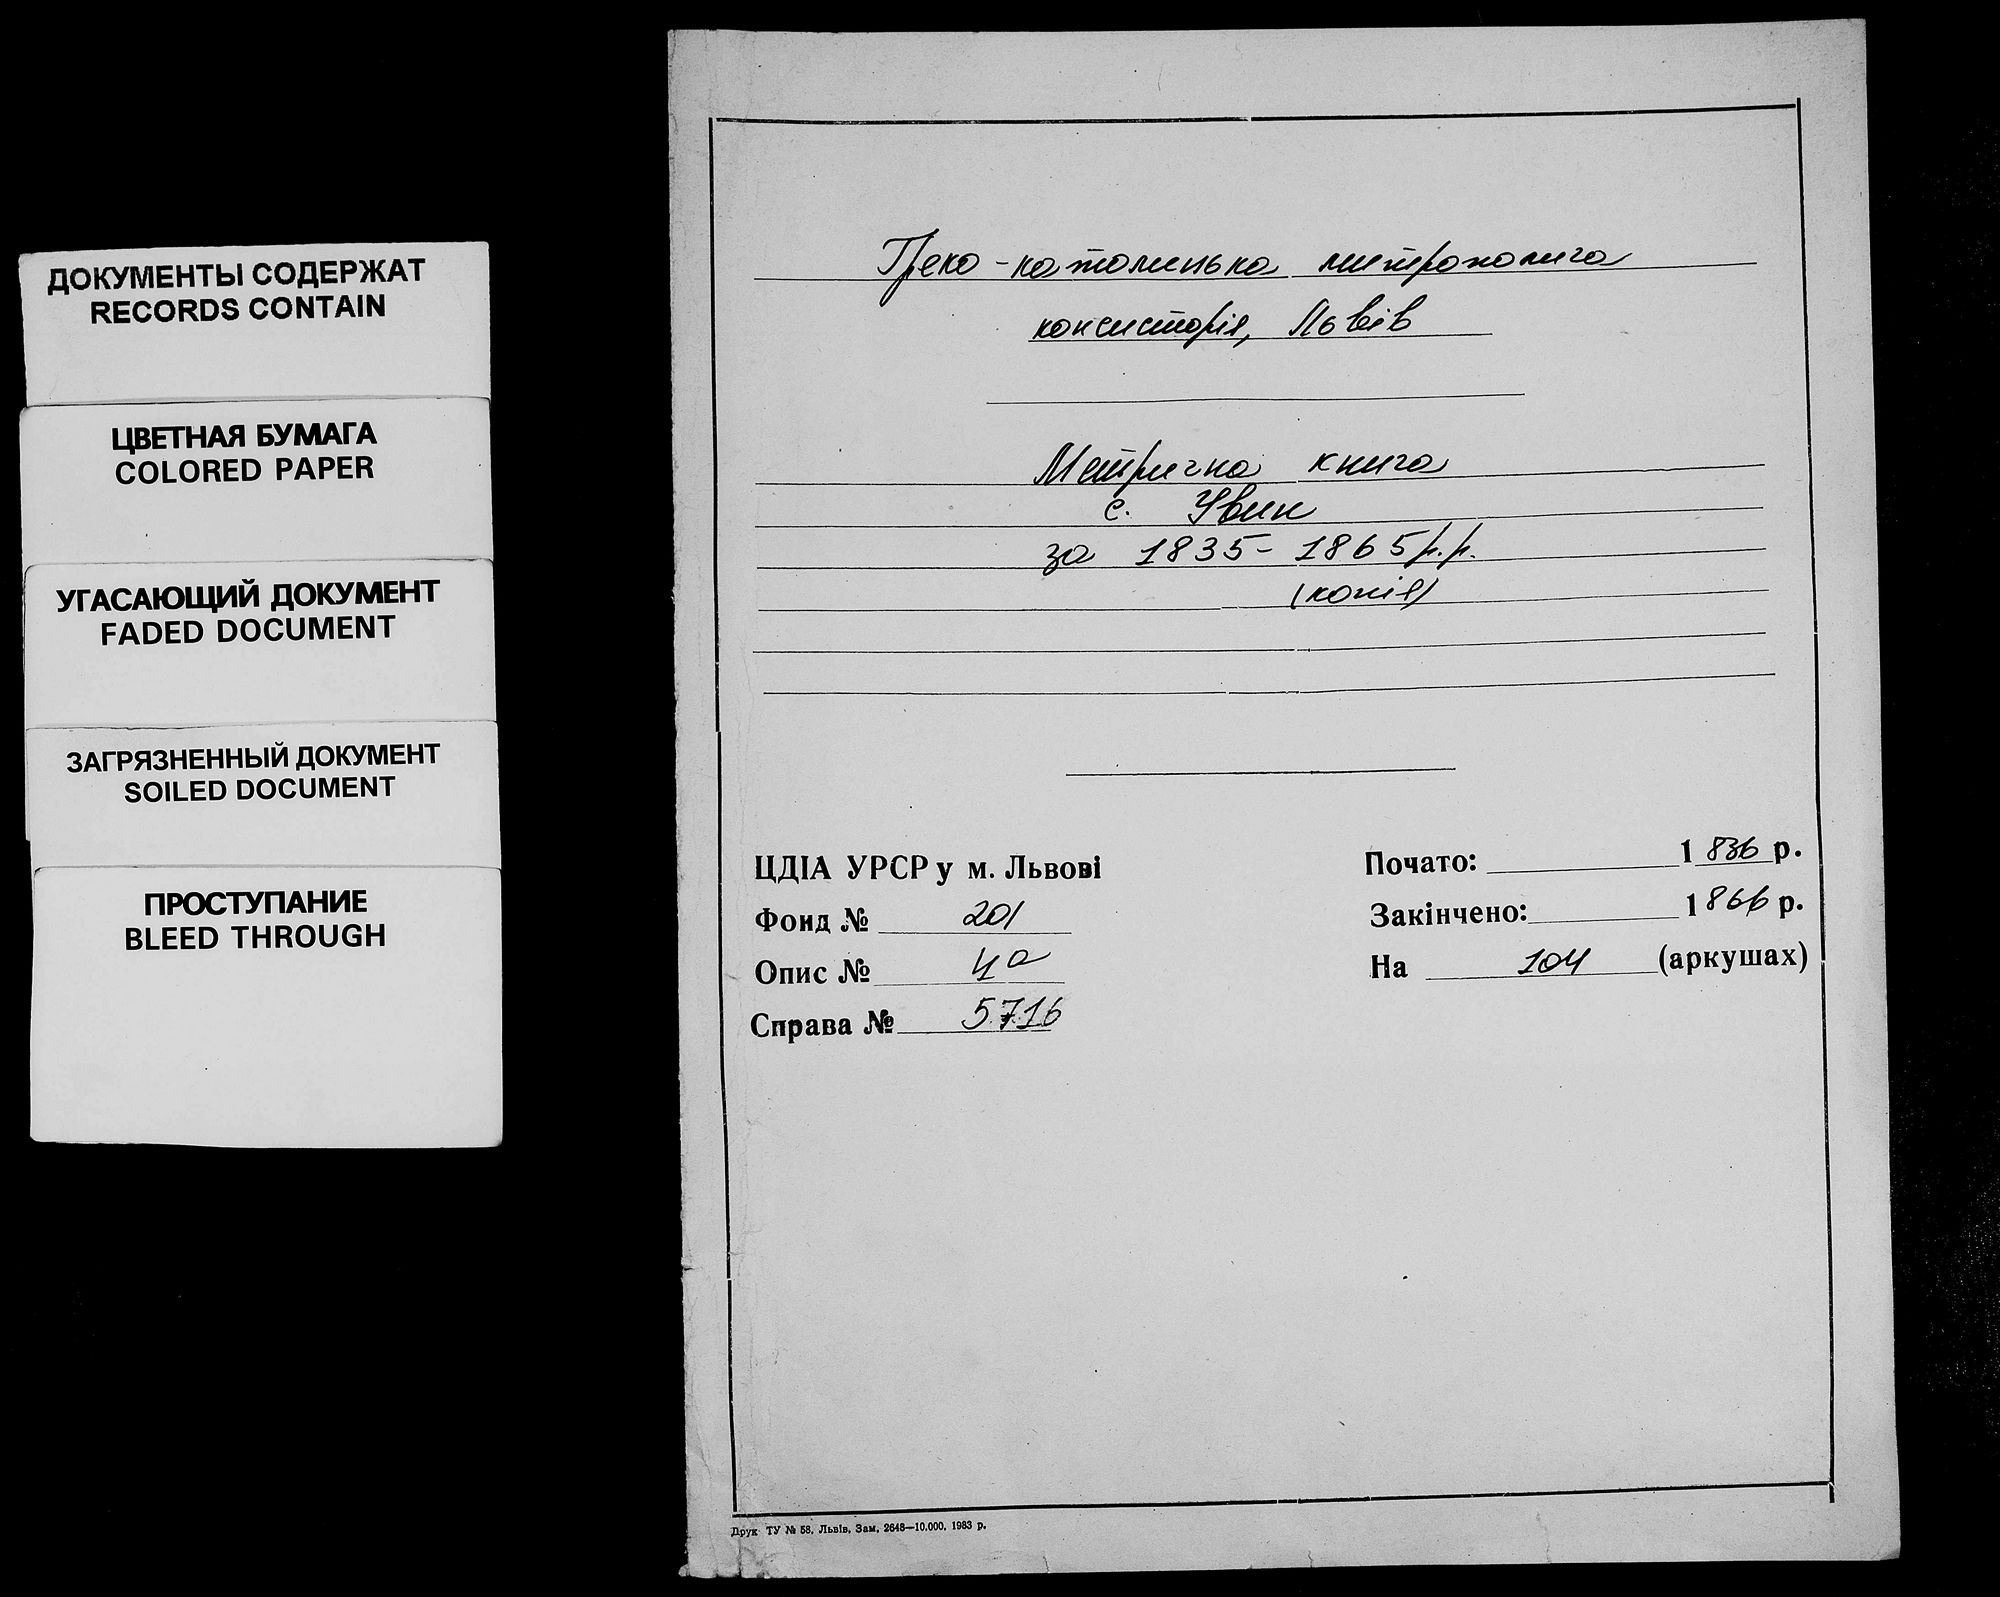 ДОКУМЕНТЫ СОДЕРЖАТ
RECORDS CONTAIN
ЦВЕТНАЯ БУМАГА
COLORED PAPER
УГАСАЮЩИЙ ДОКУМЕНТ
FADED DOCUMENT
ЗАГРЯЗНЕННЫЙ ДОКУМЕНТ
SOILED DOCUMENT
ПРОСТУПАНИЕ
BLEED THROUGH
Греко-католицька митрополича
консисторія, Львів
Метрична книга
с. Увин
за 1835-1865 р.р.
(копія)
ЦДІА УРСР у м. Львові
Фонд № 201
Опис № 4а
Справа № 5716
Почато: 1836 р.
Закінчено: 1866 р.
На 104 (аркушах)
Друк ТУ № 58, Львів, Зам, 2648—10.000. 1983 р.